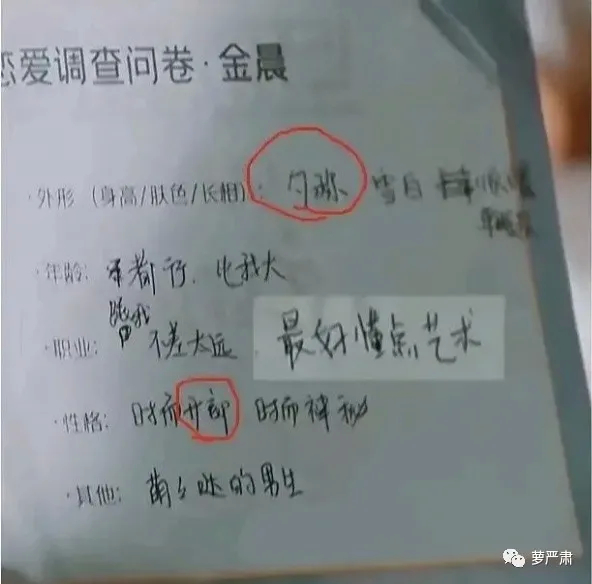 恋爱调查问卷·金晨
·外形（身高/肤色/长相）: 勺称 雪白
·年龄: 都行, 比我大
跟我
·职业: 不差太远 最好懂点艺术
·性格: 时而开郎 时而神秘
·其他: 萌々哒的男生
萝严肃